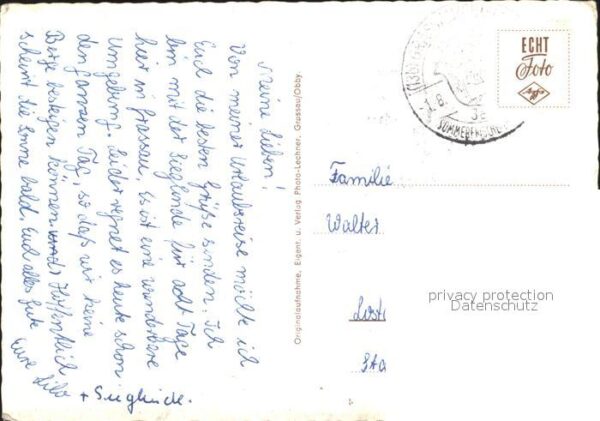 Meine Lieben!
Von meiner Urlaubsreise möchte ich
Euch die besten Grüße senden. Ich
bin mit der Sieglinde für acht Tage
hier in Grassau. Es ist eine wunderbare
Umgebung. Leider regnet es heute schon
den ganzen Tag, so daß wir keine
Berge besteigen können. Hoffentlich
scheint die Sonne bald. Euch alles Gute
Eure Lilo
+ Sieglinde.
Originalaufnahme, Eigent. u. Verlag Photo-Lechner, Grassau/Obby.
ECHT
Foto
SOMMERFRISCHE
Familie
Walter
privacy protection
Datenschutz